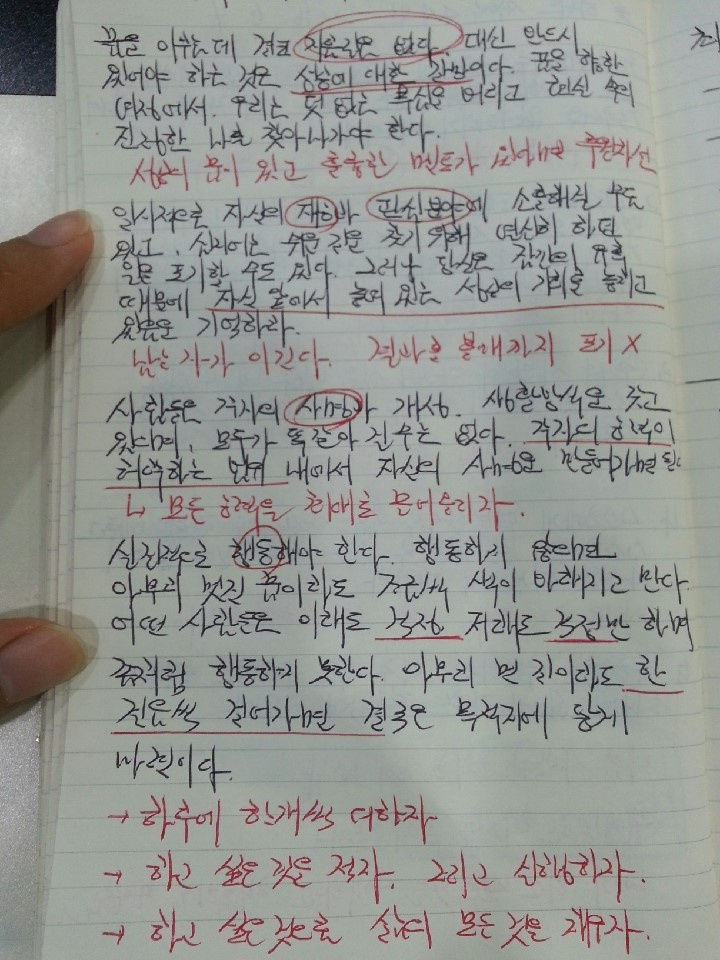 꿈을 이루는데 결코 지름길은 없다. 대신 반드시
있어야 하는 것은 성공에 대한 갈망이다. 꿈을 향한
여정에서. 우리는 덧 없는 욕심을 버리고 현실 속의
진정한 나를 찾아나가야 한다.
삶의 문이 있고 훌륭한 멘토가 되어내면
일시적으로 자신의 재능과 관심분야에 소홀해질 수도
있고, 심지어는 쉬운 길을 찾기 위해 열심히 하던
일을 포기할 수도 있다. 그러나 당신은 잠깐의 유혹
때문에 자신 앞에서 놓여 있는 성공의 기회를 놓치고
있음을 기억하라.
남는 자가 이긴다. 결과를 볼때까지 포기 X
사람들은 각자의 사명과 개성. 생활방식을 갖고
있으며, 모두가 똑같아 질수는 없다. 각자의 능력이
허락하는 범위 내에서 자신의 사명을 만들어가면 된다
↳ 모든 능력을 최대로 끌어올리자.
실질적으로 행동해야 한다. 행동하지 않는다면
아무리 멋진 꿈이라도 조금씩 색이 바래지고 만다.
어떤 사람들은 이래도 걱정 저래도 걱정만 하며
좀처럼 행동하지 못한다. 아무리 먼 길이라도 한
걸음씩 걸어가면 결국은 목적지에 닿게
마련이다.
→ 하루에 한개씩 더하자
→ 하고 싶은 것을 적자. 그리고 실행하자.
→ 하고 싶은 것으로 삶의 모든 것을 채우자.